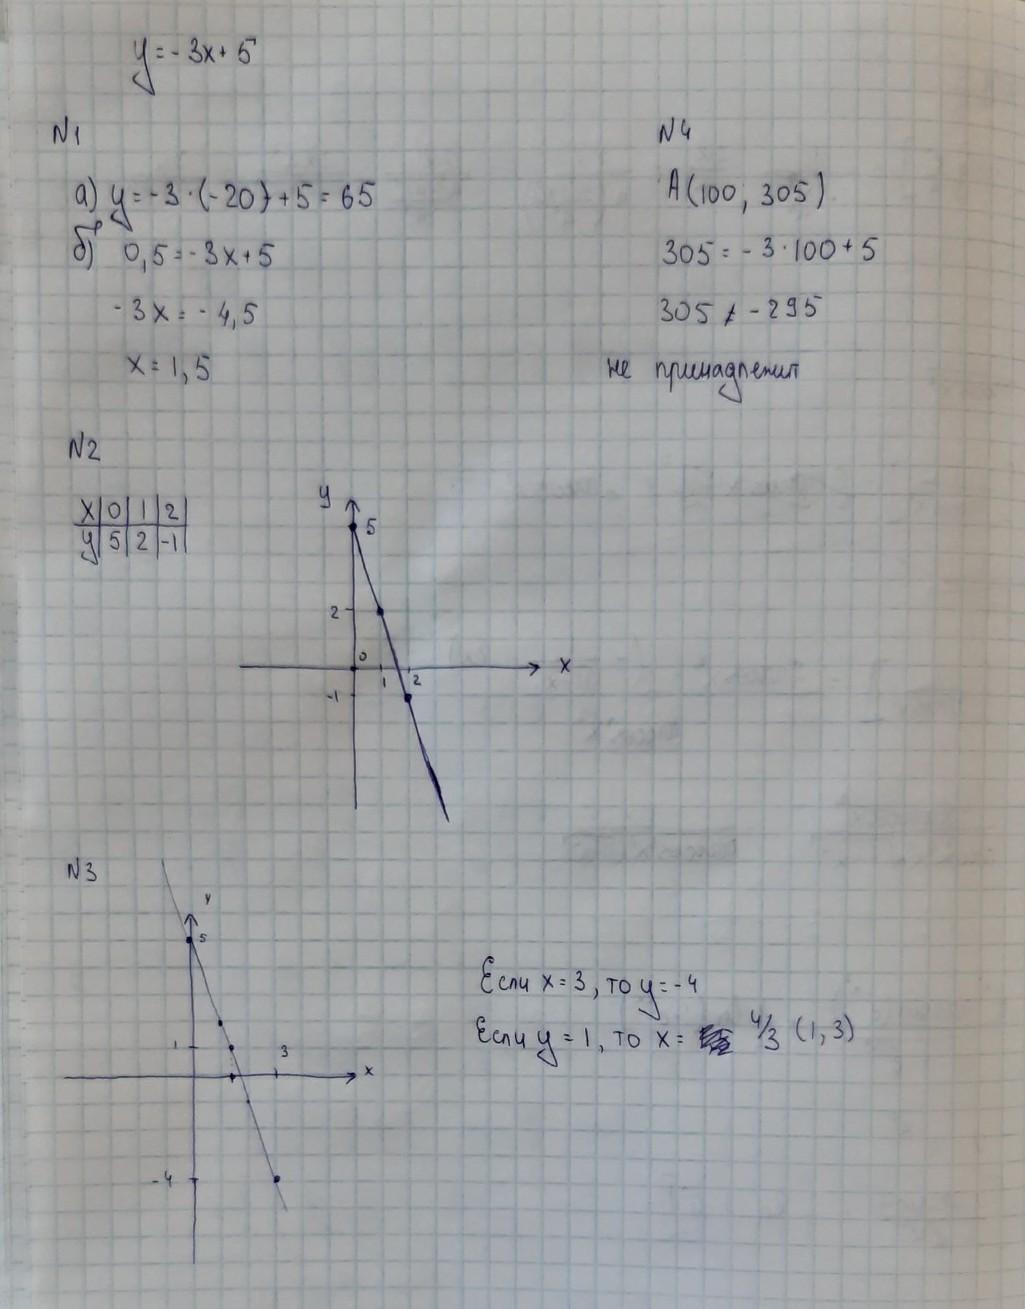 y = -3x + 5
N1
а) y = -3 · (-20) + 5 = 65
б) 0,5 = -3x + 5
-3x = -4,5
x = 1,5
N4
A(100, 305)
305 = -3 · 100 + 5
305 ≠ -295
не принадлежит
N2
X 0 1 2
y 5 2 -1
y
5
2
0
x
1 2
-1
N3
y
5
1
3
x
-4
Если x = 3, то y = -4
Если y = 1, то x = 4/3 (1,3)